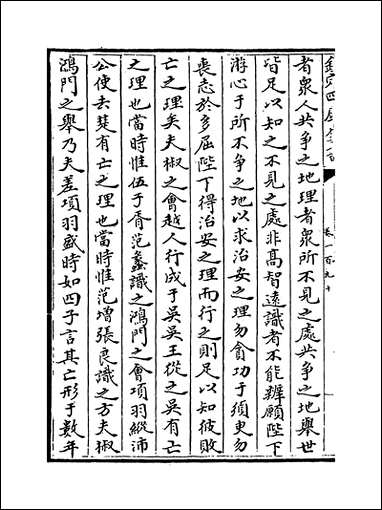 欽定四庫全書
卷一百九十
者衆人共争之地理者衆所不見之處共争之地舉世
皆足以知之不見之處非髙智遠識者不能辨願陛下
游心于所不争之地以求治安之理勿貪功于須臾勿
喪志於多屈陛下得治安之理而行之則足以知彼敗
亡之理矣夫椒之㑹越人行成于吴吴王從之吴有亡
之理也當時惟伍子胥范蠡識之鴻門之㑹項羽縱沛
公使去楚有亡之理也當時惟范增張良識之方夫椒
鴻門之舉乃夫差項羽盛時如四子言其亡形于數年